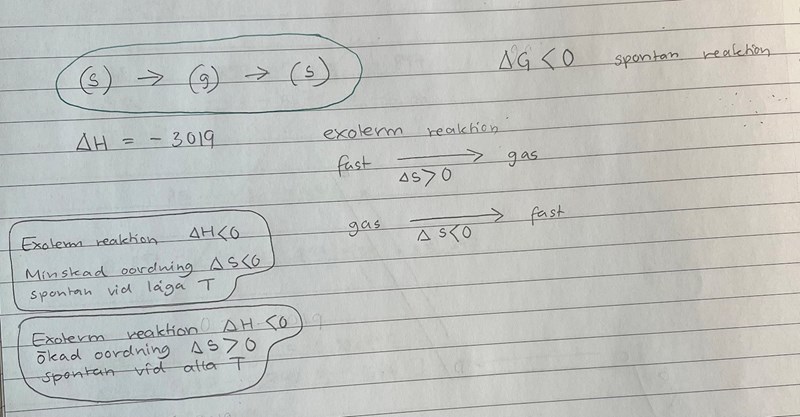 (s) → (g) → (s)
ΔG < 0 spontan reaktion
ΔH = - 3019
exoterm reaktion
fast → gas
ΔS>0
gas → fast
Δ S<0
Exoterm reaktion ΔH<0
Minskad oordning ΔS<0
spontan vid låga T
Exoterm reaktion ΔH <0
ökad oordning ΔS>0
spontan vid alla T